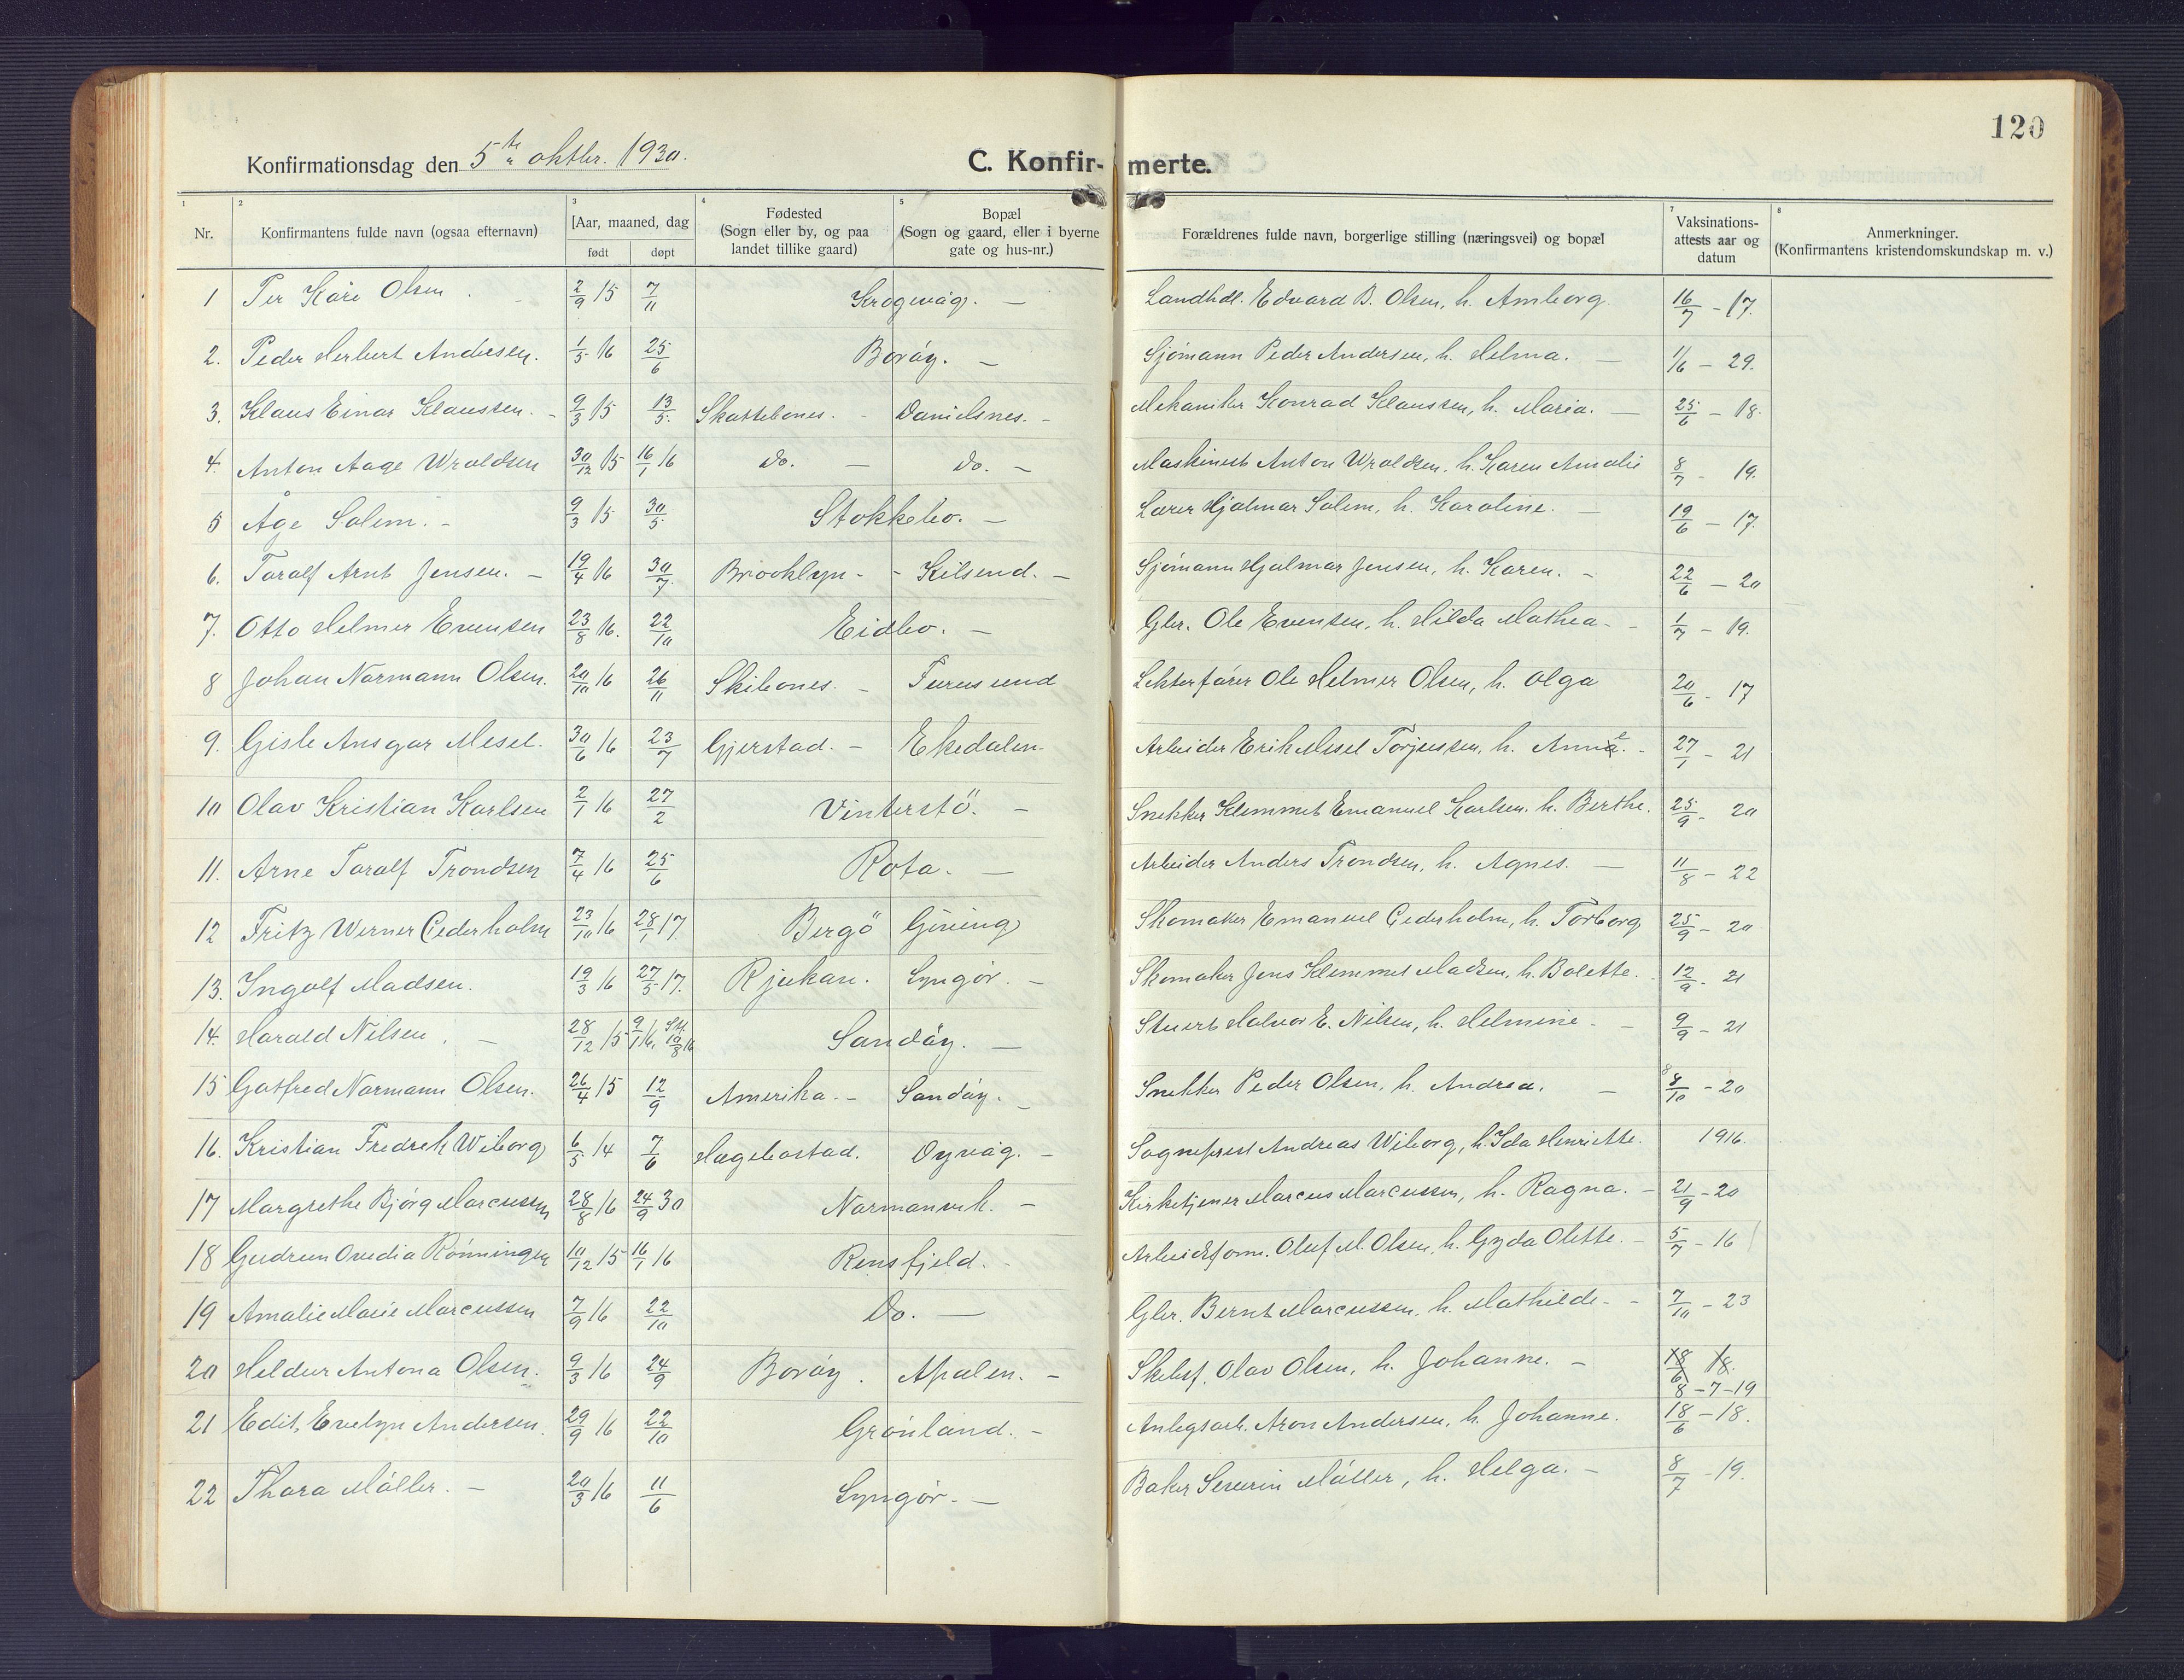 120
Konfirmationsdag den 5te oktbr. 1930. C. Konfir- merte.
1 2 3 4 5 7 8
Nr. Konfirmantens fulde navn (ogsaa efternavn) [Aar, maaned, dag født døpt Fødested (Sogn eller by, og paa landet tillike gaard) Bopæl (Sogn og gaard, eller i byerne gate og hus-nr.) Forældrenes fulde navn, borgerlige stilling (næringsvei) og bopæl Vaksinations-attests aar og datum Anmerkninger. (Konfirmantens kristendomskundskap m. v.)
1 Per Kåre Olsen. 2/9 15 7/11 Krogevåg. — Landhdl. Edvard B. Olsen, h. Amborg. 16/7 - 17.
2. Peder Herbert Andersen. 1/5 16 25/6 Borøy. — Sjømann Peder Andersen, h. Helma. — 1/6 - 29.
3. Klaus Einar Klaussen. - 9/3 15 13/5. Skattebones. - Danielsnes. - Mekaniker Konrad Klaussen, h. Maria. — 25/6 - 18.
4. Anton Aage Wroldsen 30/12 15 16/1 16 Do. — Do. — Maskinist Anton Wroldsen, h. Karen Amalie 8/7 - 19.
5 Åge Solem. - 9/3 15 30/5 Stokkebo. — Lærer Hjalmar Solem, h. Karoline. — 19/6 - 17.
6. Toralf Arnt Jensen. - 19/4 16 30/7. Brooklyn - - Kilsund. - Sjømann Hjalmar Jensen, h. Karen. - 22/6 - 20
7. Otto Helmer Evensen 23/8 16. 22/10 Eidbo. — Gbr. Ole Evensen, h. Hilda Mathea - - 1/7 - 19.
8 Johan Normann Olsen. 20/10 16 26/11 Skibones. - Furusund Lekterfører Ole Helmer Olsen, h. Olga 20/6 - 17
9. Gisle Ansgar Mesel. 30/6 16 23/7 Gjerstad. - Ekedalen. Arbeider Erik Mesel Torjussen, h. Anne. - 27/1 - 21
10 Olav Kristian Karlsen 2/1 16 27/2 Vinterstö. - Snekker Klemmet Emanuel Karlsen, h. Berthe. 25/9 - 20
11. Arne Toralf Trondsen 7/4 16 25/6 Rota. — Arbeider Anders Trondsen, h. Agnes. — 11/8 - 22
12 Fritz Werner Cederholm 23/10 16 28/1 17. Bergö Gjeving Skomaker Emanuel Cederholm, h. Torborg 25/9 - 20
13. Ingolf Madsen. 19/3 16 27/5 17. Rjukan. Lyngör. - Skomaker Jens Klemmet Madsen, h. Bolette. 12/9 - 21
14. Harald Nilsen. - 28/12 15 9/1 16, Stf. 10/8 16 Sandøy. — Stuert Halvor E. Nilsen, h. Helmine - - 9/9 - 21
15 Gotfred Normann Olsen. 26/4 15 12/9 Amerika. - Sandøy. - Snekker Peder Olsen, h. Andrea. — 8/10 - 20
16. Kristian Fredrik Wiborg 6/5 14 7/6 Hægebostad. Dyvåg. - Sogneprest Andreas Wiborg, h. Ida Henriette. 1916.
17 Margrethe Bjørg Marcussen 28/8 16 24/9 30 Normannvik. - Kirketjener Marcus Marcussen, h. Ragna. - 21/9 - 20
18 Gudrun Ovedia Rønningen 10/12 15 16/1 16 Rensfjeld. - Arbeidsform. Oluf M. Olsen, h. Gyda Olette. - 5/7 - 16
19 Amalie Marie Marcussen 7/9 16 22/10 Do. — Gbr. Bernt Marcussen, h. Mathilde - - 7/10 - 23
20 Heldur Antona Olsen. 9/3 16 24/9 Borøy. Apalen. - Skibsf. Olav Olsen, h. Johanne. - 18/6 18. 8 - 7 - 19
21 Edit, Evelyn Andersen. 29/9 16 22/10 Grønland. - Anlegsarb. Aron Andersen, h. Johanne. 18/6 - 18.
22 Thora Møller. - 20/3 16 11/6 Lyngör. — Baker Severin Møller, h. Helga. - 8/7 - 19.